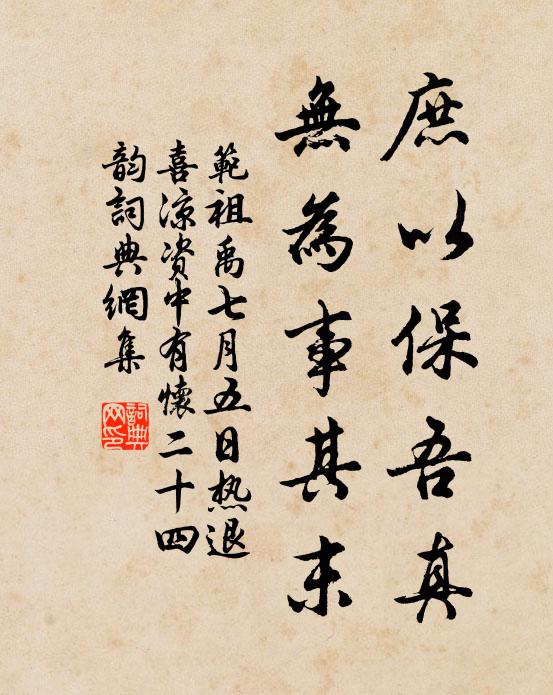 庶以保吾真
無為事其末
範祖禹七月五日热退
喜凉资中有懷二十四
韵詞典網集
詞典
网印